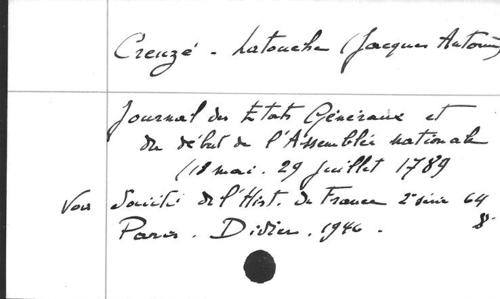 Creuzé - Latouche (Jacques Antoine)
Journal des Etats Généraux et
du début de l'Assemblée nationale
(18 mai. 29 Juillet 1789
Voir Société de l'Hist. de France 2e série 64
Paris. Didier. 1946. 8°